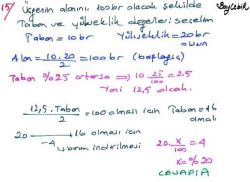 15/ Üçgenin alanını 100br olacak şekilde
Taban ve yükseklik değerleri seçelim
Taban = 10br Yükseklik = 20br olsun
Alan = 10.20 / 2 = 100br (başlangıç)
Taban %25 artarsa ⇒ 10. 25/100 = 2,5
Yani 12,5 olcak.
12,5. Taban / 2 = 100 olması için Taban = 16 olmalı
20 → 16 olması için
-4 indirilmeli
20. x/100 = 4
x = %20
CEVAP: A